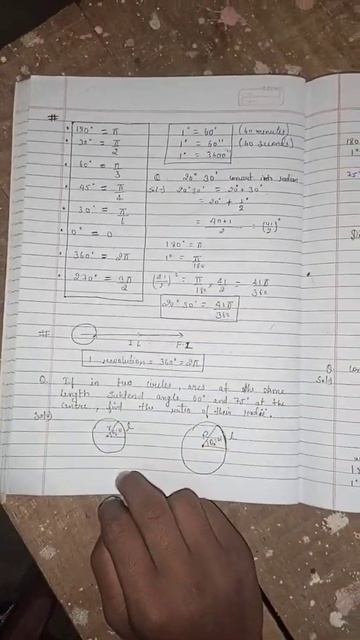 #
• 180° = π
• 90° = π/2
• 60° = π/3
• 45° = π/4
• 30° = π/6
• 0° = 0
• 360° = 2π
• 270° = 3π/2
1° = 60' (60 minutes)
1' = 60" (60 seconds)
1° = 3600"
Q. 20° 30' convert into radian
Sol-) 20°30' = 20° + 30'
= 20° + 1°/2
= 40+1/2 = (41/2)°
180° = π
1° = π/180
(41/2)° = π/180 × 41/2 = 41π/360
20° 30' = 41π/360
#
I.L F.L
1 revolution = 360° = 2π
Q. If in two circles, arcs of the same
length subtend angle 60° and 75° at the
centre, find the ratio of their radii.
Sol-)
l
l